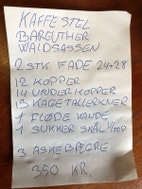 KAFFE STEL
BAREUTHER
WALDSASSEN
2 STK. FADE 24+28
12 KOPPER
14 UNDERKOPPER
13 KAGETALLERKNER
1 FLØDE KANDE
1 SUKKER SKÅL
3 ASKEBÆGRE
350 KR.